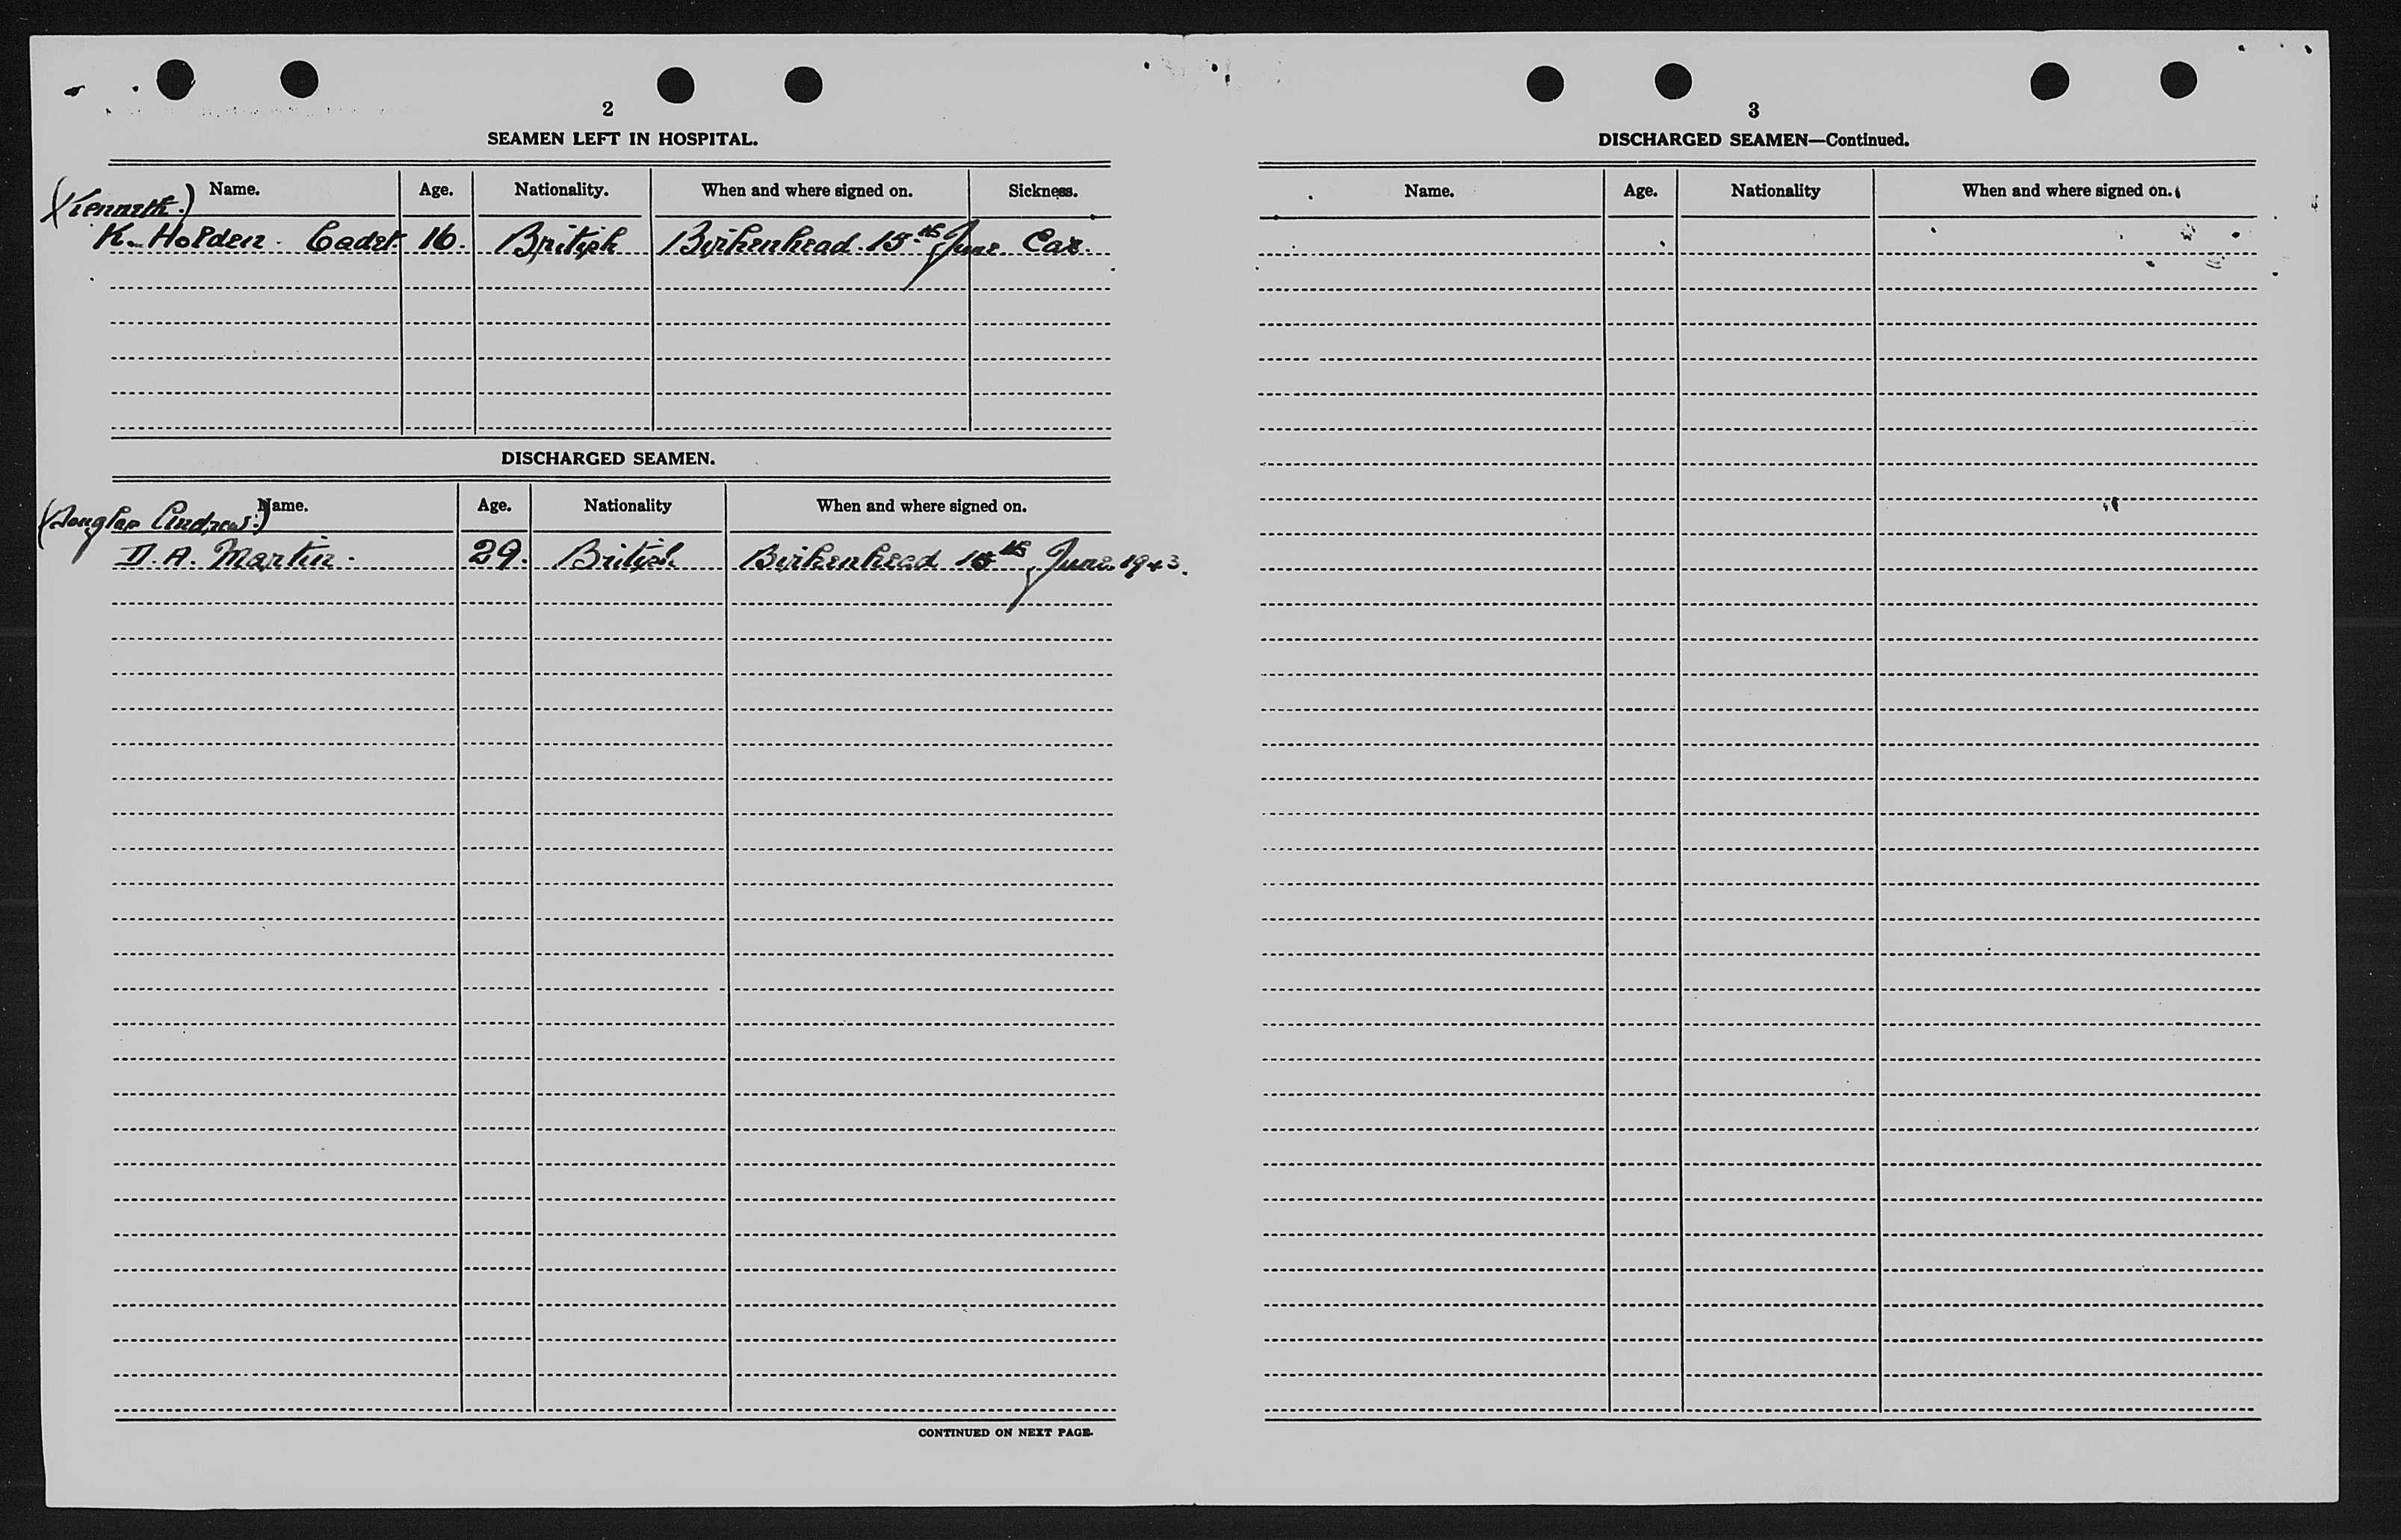 2
SEAMEN LEFT IN HOSPITAL.
Name. Age. Nationality. When and where signed on. Sickness.
(Kenneth.)
K. Holden. Cadet. 16. British Birkenhead. 15th June. Ear.
DISCHARGED SEAMEN.
Name. Age. Nationality When and where signed on.
(Douglas Andrew.)
D. A. Martin. 29. British Birkenhead 15th June. 1943.
CONTINUED ON NEXT PAGE.
3
DISCHARGED SEAMEN—Continued.
Name. Age. Nationality When and where signed on.